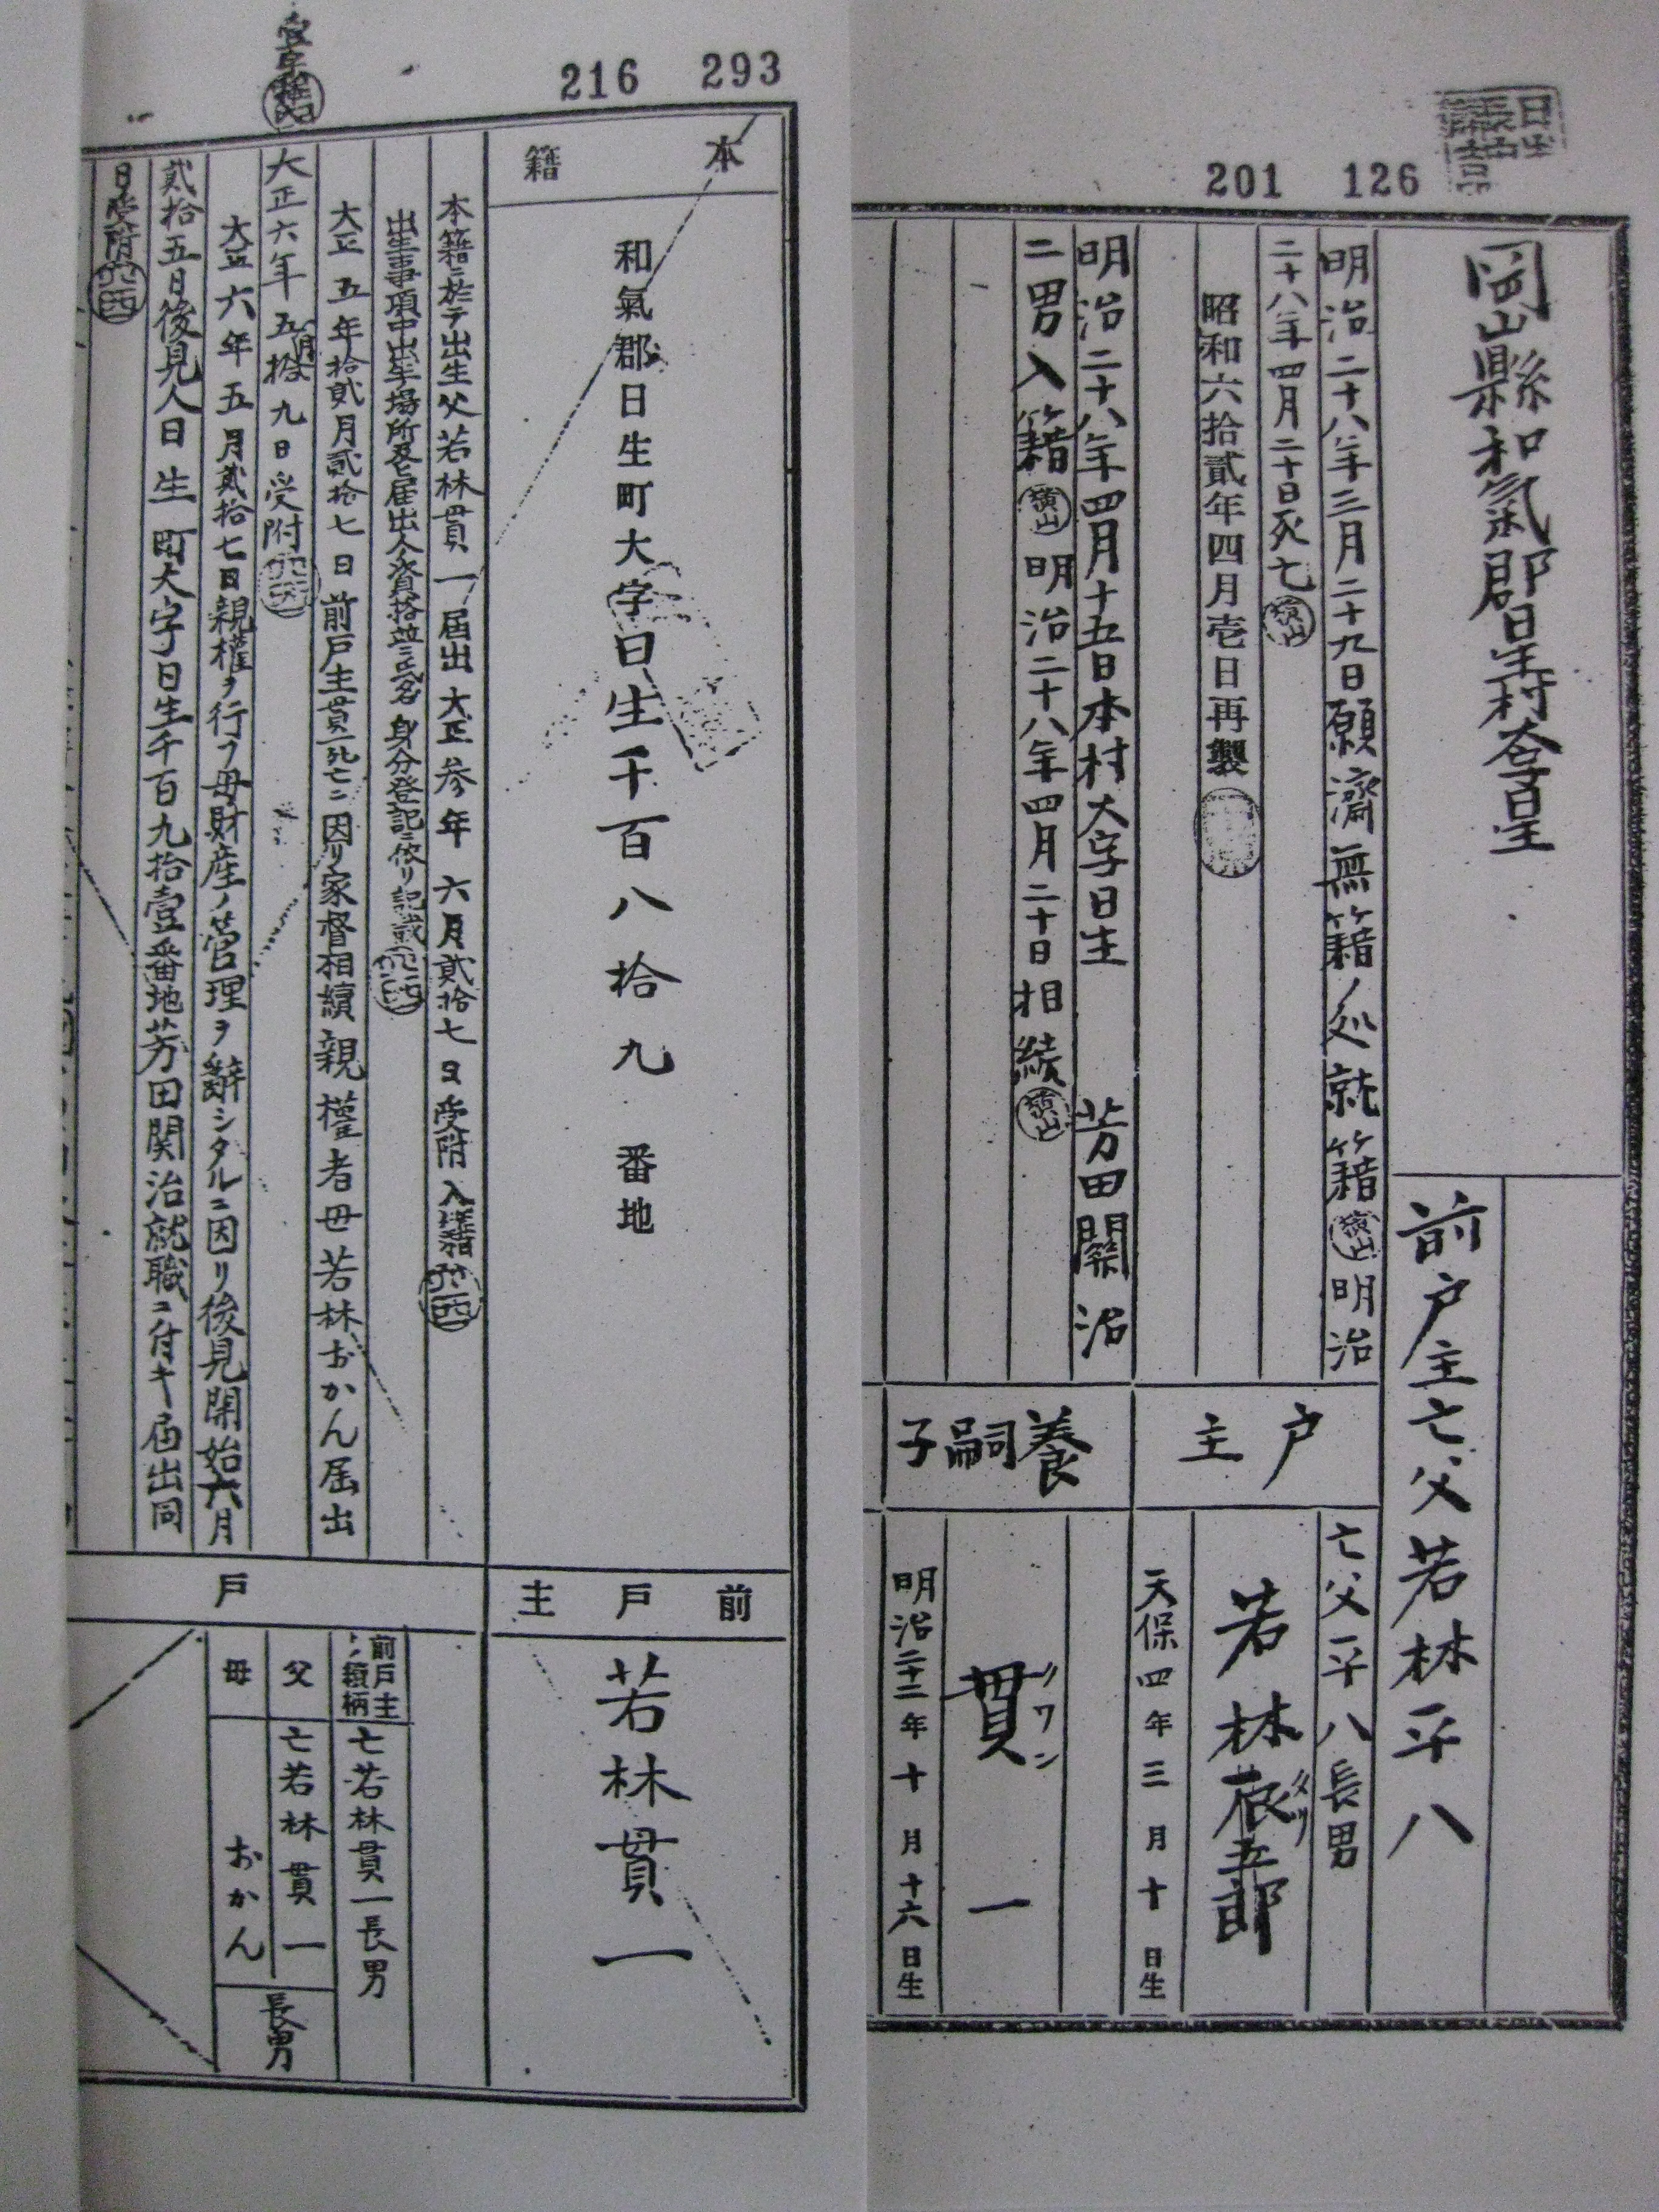 201 126
岡山縣和氣郡日生村大字日生
前戸主亡父若林平八
明治二十八年三月二十九日願濟無籍ノ処就籍 横山 明治
二十八年四月二十日死亡 横山
昭和六拾貳年四月壱日再製
明治二十八年四月十五日本村大字日生 芳田關治
二男入籍 横山 明治二十八年四月二十日相続 横山
戸主
亡父平八長男
若林辰五郎
天保四年三月十日生
養嗣子
貫一
クワン
明治二十二年十月十六日生
216 293
本籍
和氣郡日生町大字日生千百八拾九番地
前戸主
若林貫一
本籍ニ於テ出生父若林貫一届出大正参年六月貳拾七日受附入籍
出生事項中出生場所及届出人ノ資格並ニ氏名身分登記ニ依リ記載
大正五年拾貳月貳拾七日前戸主貫一死亡ニ因リ家督相續親權者母若林おかん届出
大正六年五月拾九日受附
大正六年五月貳拾七日親權ヲ行フ母財産ノ管理ヲ辭シタルニ因リ後見開始六月
貳拾五日後見人日生町大字日生千百九拾壹番地芳田関治就職ニ付キ届出同
日受附
戸
前戸主トノ續柄
亡若林貫一長男
父
亡若林貫一
母
おかん
長男